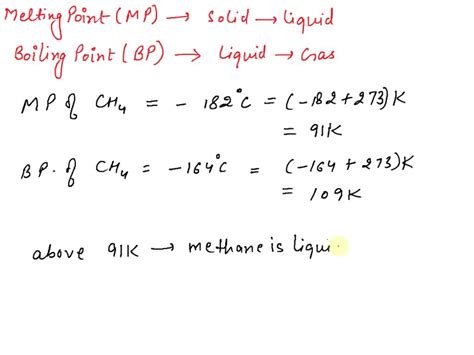 Melting Point (MP) → Solid → Liquid
Boiling Point (BP) → Liquid → Gas
MP of CH₄ = - 182°C = (-182+273)K
= 91K
BP. of CH₄ = -164°C = (-164 + 273)K
= 109K
above 91K → methane is liqui